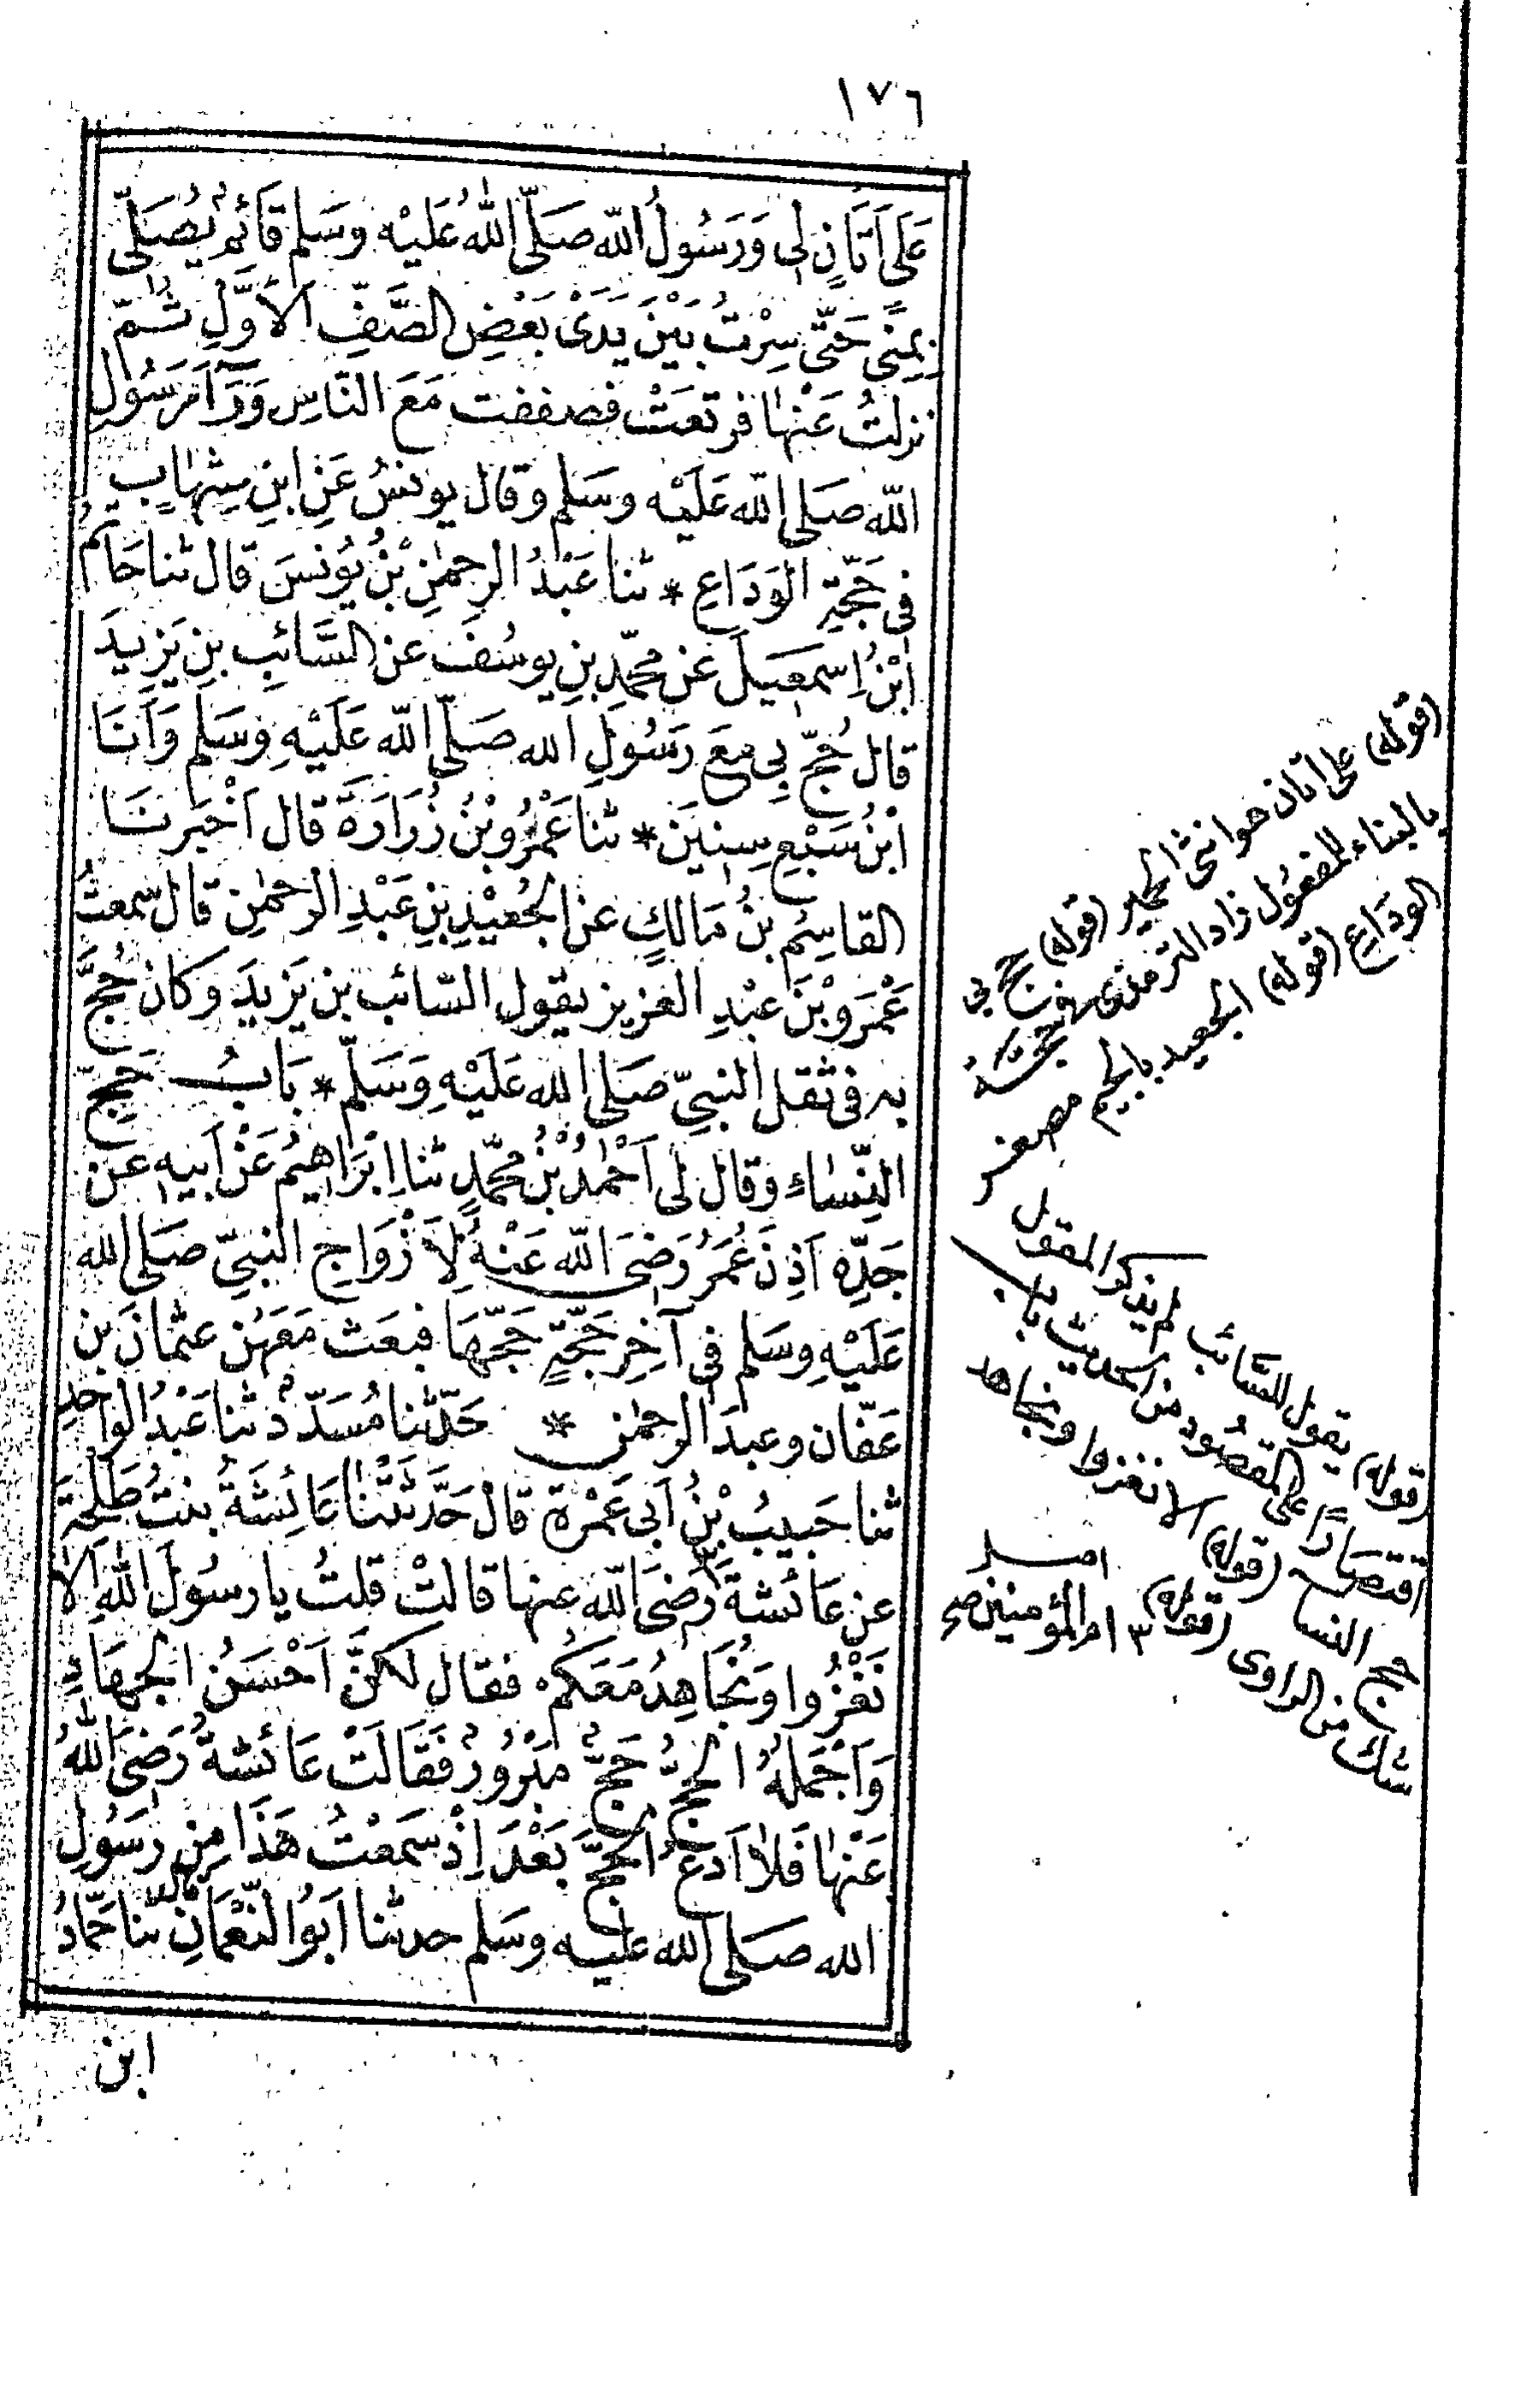 ١٧٦
عَلَى اَتَانٍ لِى وَرَسُولُ اللّٰه صَلَّى اللّٰهُ عَلَيْه وسَلم قَائمٌ يُصَلِّى
بِمِنًى حَتَّى سِرْتُ بَيْنَ يَدَىْ بَعْضِ الصَّفِّ الاَوَّلِ ثُمّ
نزلتُ عَنْهَا فرتعَتْ فصففت مَعَ النَّاسِ وَرَآءَ رَسُولِ
اللّٰه صَلى اللّٰه عَلَيْه وسَلم وقال يونسُ عَنِ ابنِ شِهَابٍ
فى حَجَّةِ الوَدَاعِ * ثنا عَبْدُ الرحمٰنِ بْنُ يُونسَ قال ثنا حَاتمُ
ابْنُ اِسمَعِيلَ عَن محمّدِ بنِ يوسُفَ عن السَّائِبِ بنِ يَزيدَ
قال حُجَّ بِى مع رَسُولِ الله صَلَّى اللّٰه عَلَيْهِ وسَلم وَاَنَا
ابْنُ سَبْعِ سِنينَ * ثنا عَمْرُو بْنُ زُرَارَةَ قال اَخْبَرنَا
القاسِمُ بنُ مَالكٍ عن الجُعَيْدِ بنِ عَبْدِ الرحمٰنِ قال سَمعتُ
عُمَرَ وْبْنَ عبْدِ العَزيز يقول السّائب بن يَزيدَ وكان حُجَّ
به فى ثقل النبيّ صَلى اللّٰه عَلَيْهِ وَسَلّم * بَابُ حَجِّ
النِّسَاءِ وقال لى اَحْمَدُ بْنُ محمّدٍ ثنا اِبْرَاهيمُ عَنْ اَبيهِ عن
جَدِّه اَذِنَ عُمَرُ رَضىَ اللّٰه عَنْهُ لِاَزْوَاجِ النبيِّ صَلى اللّٰه
عَلَيْهِ وسَلم فى آخِرِ حَجَّةٍ حَجَّهَا فبعَث مَعَهُن عثمانَ بن
عَفّان وعبدَ الرحمٰن * حَدّثنا مُسَدّدٌ ثنا عَبْدُ الواحِدِ
ثنا حَبيبُ بْنُ اَبى عَمْرة قال حَدَّثَتْنا عَائشَةُ بنتُ طَلحَةَ
عن عَائشَةَ ٣ رضَىَ اللّٰه عنها قالتْ قلتُ يا رسُولَ اللّٰهِ اَلاَ
نَغْزُوا وَنُجَاهِدُ مَعَكمْ فقال لَكنَّ اَحْسَنُ الجهَادِ
وَاَجْمَلهُ الحَجُّ حَجٌّ مَبْرُورٌ فَقَالَتْ عَائشَةُ رَضىَ اللّٰهُ
عَنْهَا فَلاَ اَدَعُ الحَجَّ بَعْدَ اِذْ سَمعْتُ هَذَا مِن رَسُولِ
الله صَلى اللّٰه عليْه وسَلم حدثنا اَبُو النّعْمَانِ ثنا حَمّادُ
ابن
(قوله) على اتان هو انثى الحمير (قوله) حج بى
بالبناء للمفعُول زاد الترمذى فى حجّة
الودَاع (قوله) الجعيد بالجيم مصغر
(قوله) يقول للسَّائب لم يذكر المقول
اقتصَارًا على المقصُود من الحديث باب
حج النسا (قوله) الا نغزوا ونجاهد
شك من الراوى (قوله) ٣ ام المؤمنين صح
اصل